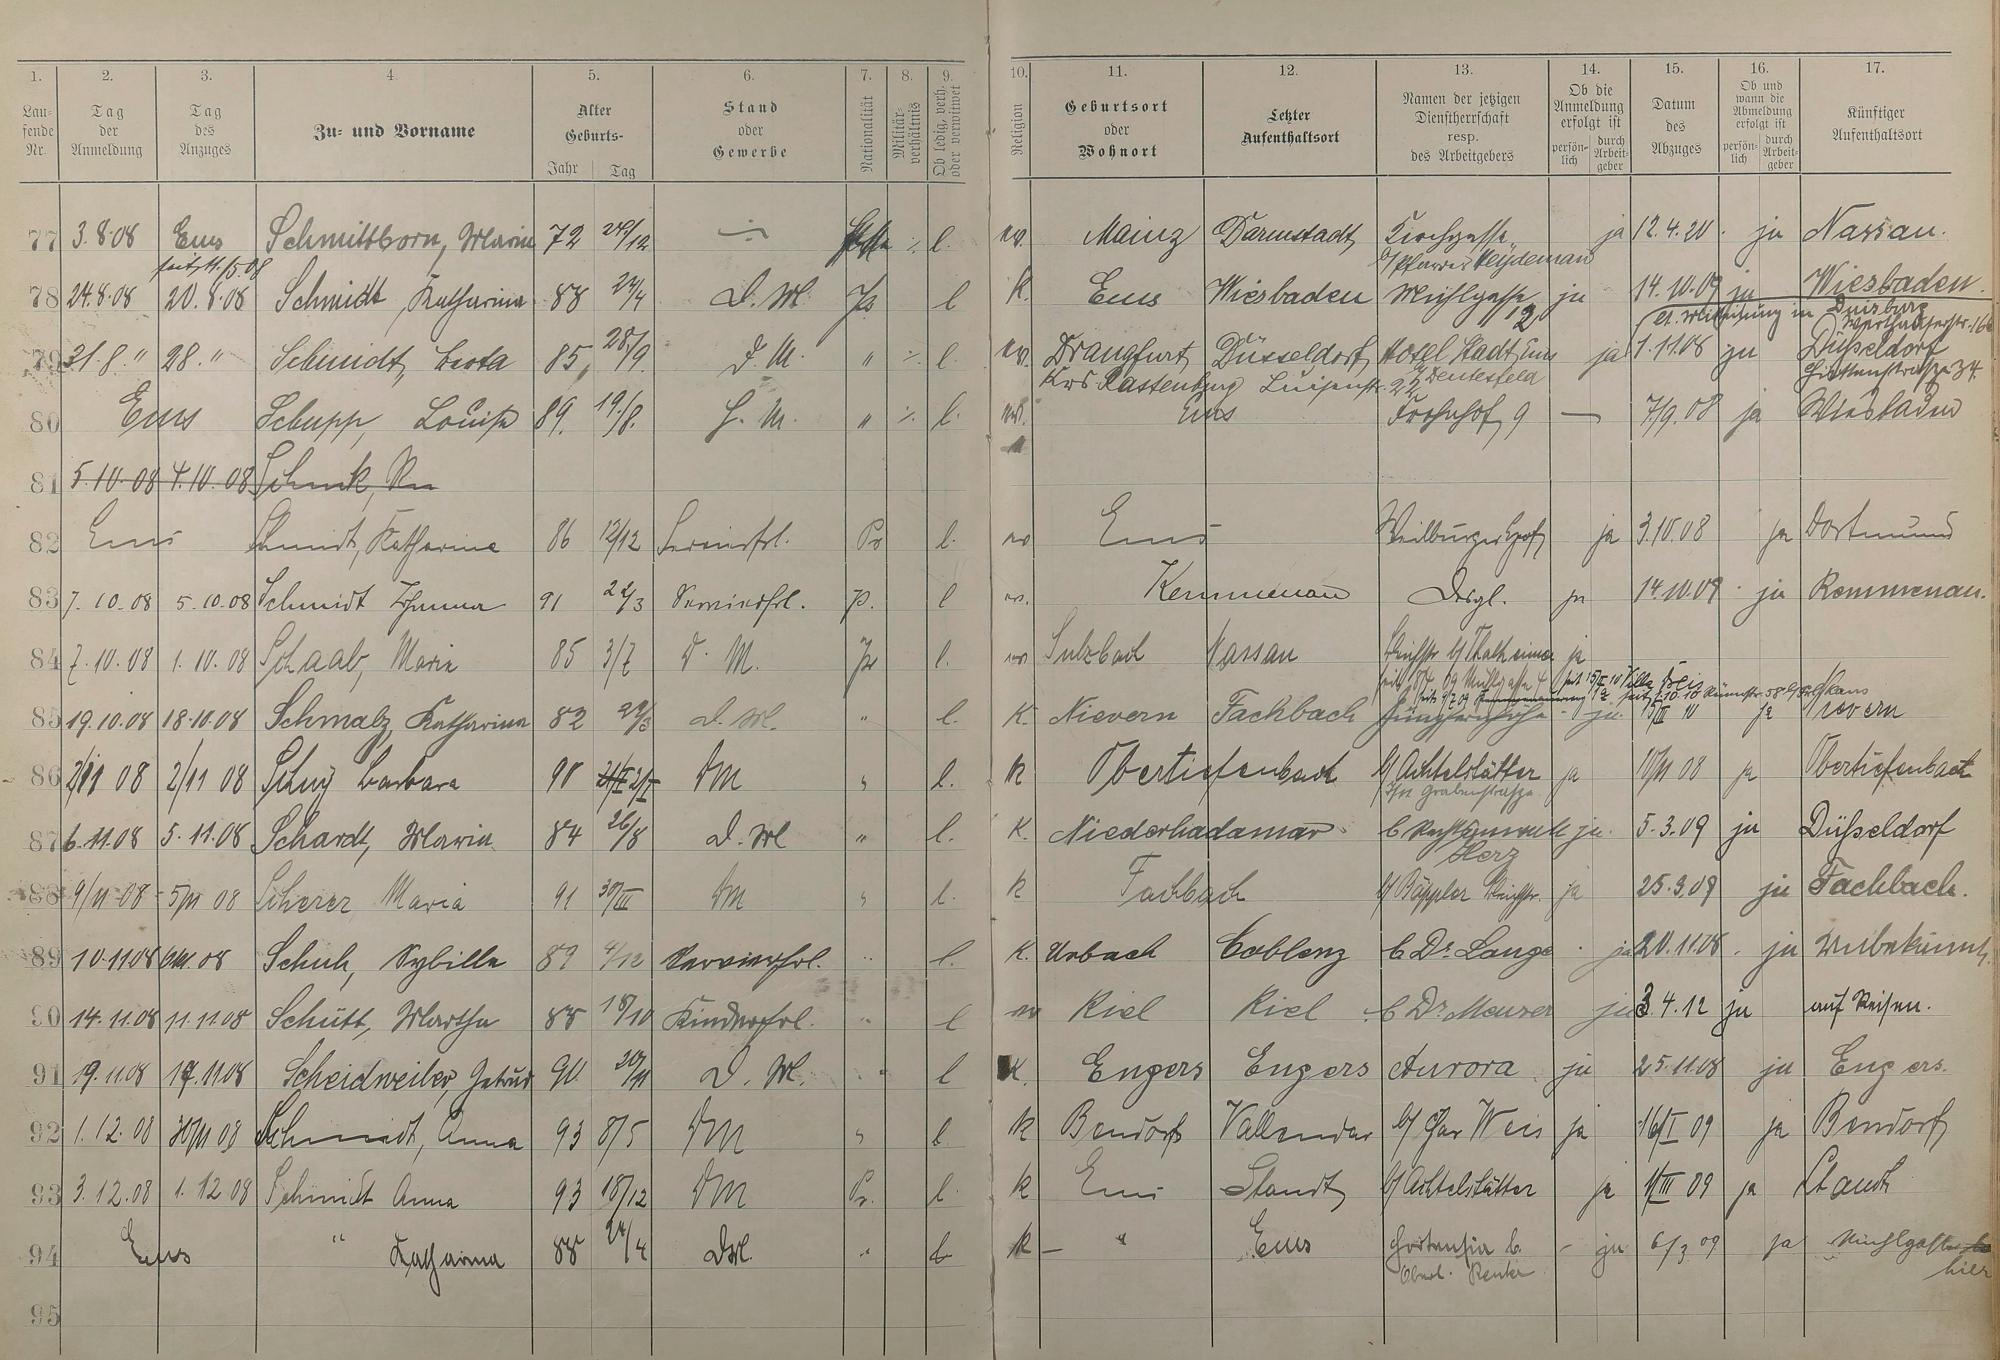 1. 2. 3. 4. 5. 6. 7. 8. 9. 10. 11. 12. 13. 14. 15. 16. 17.
Lau-fende Nr. Tag der Anmeldung Tag des Anzuges Zu- und Vorname Alter Geburts- Jahr Tag Stand oder Gewerbe Nationalität Militär-verhältnis Ob ledig, verh. oder verwitwet Religion Geburtsort oder Wohnort Letzter Aufenthaltsort Namen der jetzigen Dienstherrschaft resp. des Arbeitgebers Ob die Anmeldung erfolgt ist persön-lich durch Arbeit-geber Datum des Abzuges Ob und wann die Abmeldung erfolgt ist persön-lich durch Arbeit-geber Künftiger Aufenthaltsort
77 3.8.08 Ems Schmittborn, Maria 72 29/12 l. ev. Mainz Darmstadt Kirchgasse ja 12.4.20 ja Nassau.
seit 11/5.08 b/ Pfarrer Heydemann
78 24.8.08 20.8.08 Schmidt, Katharina 88 24/4 D. M. Ps l K. Ems Wiesbaden Mühlgasse 12 ja 14.10.09 ja Wiesbaden.
in Duisburg
79 31.8. " 28. " Schmidt, Berta 85 28/9 D. M. " ·/. l. ev. Drangfurt Düsseldorf Hotel Stadt Ems ja 1.11.08 ja Düsseldorf
Krs Rastenburg Luisenstr. 22 34.
80 Ems Schupp, Louise 89. 19./8. H. M. " ·/. l. ev. Ems Frohnhof 9 — 7/9.08 ja Wiesbaden
81 5.10.08 4.10.08 Schenk,
82 Ems Schmidt, Katharina 86 12/12 Servierfrl. Pr l. ev Ems Weilburgerhof ja 3.10.08 ja Dortmund
83 7.10.08 5.10.08 Schmidt Johanna 91 22/3 Servierfrl. P. l ev. Kemmenau Desgl. ja 14.10.09 ja Kemmenau.
84 7.10.08 1.10.08 Schaab, Maria 85 3/7 D. M. Pr l. ev Sulzbach Nassau b/ Thalheimer ja
85 19.10.08 18.10.08 Schmalz, Katharina 82 29/3 D. M. " l. K. Nievern Fachbach Jungfernhöhe ja. III 10 ja Nievern
86 2/11 08 2/11 08 Schuy Barbara 90 DM " l. K Obertiefenbach b/ Achtelstätter ja 11/11 08 ja Obertiefenbach
Grabenstraße
87 6.11.08 5.11.08 Schardt, Maria 84 26/8 D. M " l. K. Niederhadamar b Rechtsanwalt ja. 5.3.09 ja Düsseldorf
Herz
88 9/11 08 5/11 08 Scherer Maria 91 30/III DM " l. K Fachbach b/ Bäppler ja 25.3.09 ja Fachbach.
89 10.11.08 08 Schuh, Sybilla 89 4/12 Servierfrl. " l. K. Urbach Coblenz b Dr. Lange ja 20.11.08 ja Unbekannt.
90 14.11.08 11.11.08 Schütt, Martha 88 18/10 Kinderfrl. " l ev Kiel Kiel b Dr Meuser ja 3.4.12 ja auf Reisen.
91 19.11.08 17.11.08 Scheidweiler, Getrud 90 20/11 D. M. " l K. Engers Engers Aurora ja 25.11.08 ja Engers.
92 1.12.08 30/11 08 Schmidt, Anna 93 8/5 DM " l. K Bendorf Vallendar b/ Weis ja 16/I 09 ja Bendorf
93 3.12.08 1.12 08 Schmidt Anna 93 18/12 DM Pr. l. K Ems Staudt b/ Achtelstätter ja 1/III 09 ja Staudt
94 Ems " Katharina 88 24/4 DM. " l. K — " Ems Hortensia b. – ja 6/3 09 ja Mühlgasse
hier
95